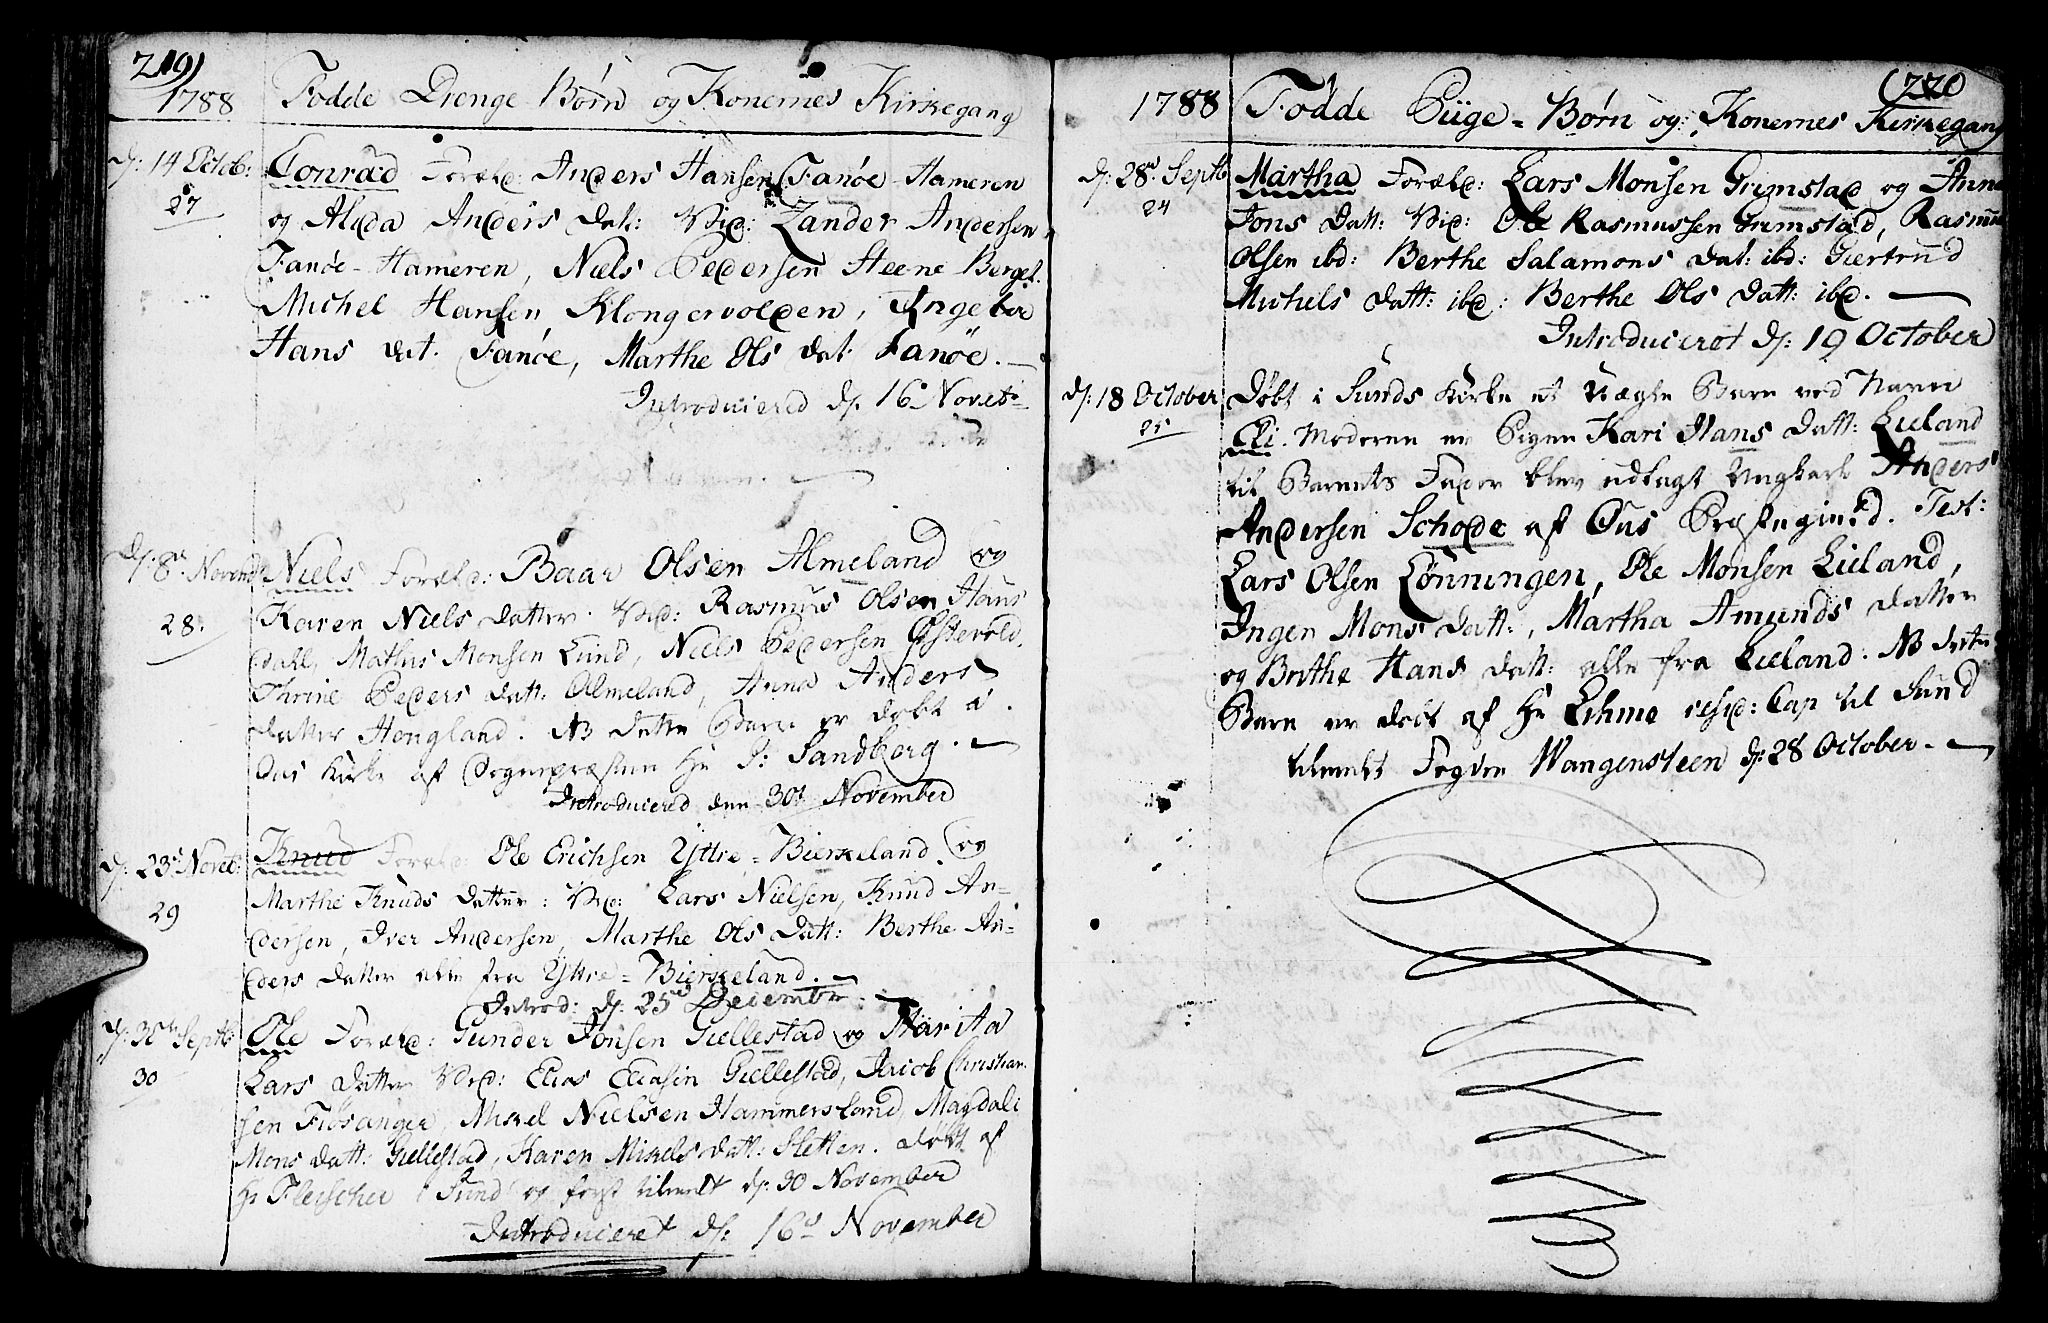 219)
1788 Fødde Drenge Børn og Konernes Kirkegang
d: 14 Octob: Conrad Foræld: Anders Hansen Fanøe-Hameren
27 og Alida Anders dat: Vid: Zander Andersen
Fanøe-Hameren, Niels Pedersen Steene Berget
Michel Hansen Klongervolden, Ingebor
Hans dat. Fanøe, Marthe Ols dat. Fanöe.
Introducered d: 16 Novetr
d: 8de Novemb Niels Foræld: Baar Olsen Almeland og
28. Karen Niels datter. Vid: Rasmus Olsen Haus
dahl, Mathis Monsen Lund, Niels Pedersen Østevold,
Thrine Peders datt: Almeland, Anna Anders
datter Hougland. NB dette Barn er døbt i
Ous Kirke af Sognepræsten Hr P: Sandberg.
Introducered den 30t November
d: 23d Novet: Knud Foræld: Ole Erichsen Yttre-Bierkeland, og
29 Marthe Knuds datter: Vid: Lars Nielsen, Knud An-
dersen, Iver Andersen, Marthe Ols Datt: Berthe An-
ders datter alle fra Yttre-Bierkeland.
Introd: d: 25de Decembr
d: 30te Septb: Ole Foræld: Gunder Jonsen Giellestad og Marita
30 Lars datter Vid: Elias Eliasen Giellestad, Jacob Christian
sen Fiøsanger, Mikel Nielsen Hammersland, Magdali
Mons datt: Giellestad, Karen Mikels datt: Sletten. døbt af
Hr Fleischer i Sund og først tilmelt d: 30 November
Introduceret d: 16d November
(220
1788 Fødde Piige-Børn og Konernes Kirkegang
d: 28de Septb Martha Foræld: Lars Monsen Grimstad og Anna
24 Jons datt: Vid: Ole Rasmussen Grimstad, Rasmus
Olsen ibd: Berthe Salamons dat: ibd: Giertrud
Michels datt: ibd: Berthe Ols datt: ibd.
Introduceret d: 19 October
d: 18 October Døbt i Sunds Kirke et uægte Barn ved Navn
25 Eli. Moderen er Pigen Kari Hans datt: Lieland
til Barnets Fader blev udlagt Ungkarl Anders
Andersen Schode af Ous Præstegield. Test:
Lars Olsen Lönningen, Ole Monsen Lieland,
Ingen Mons datt:, Martha Amunds datter
og Brithe Hans datt: alle fra Lieland. NB dette
Barn er døbt af Hr Lihme resid: Cap til Sund
tilmelt Fogden Wangensteen d: 28 October.